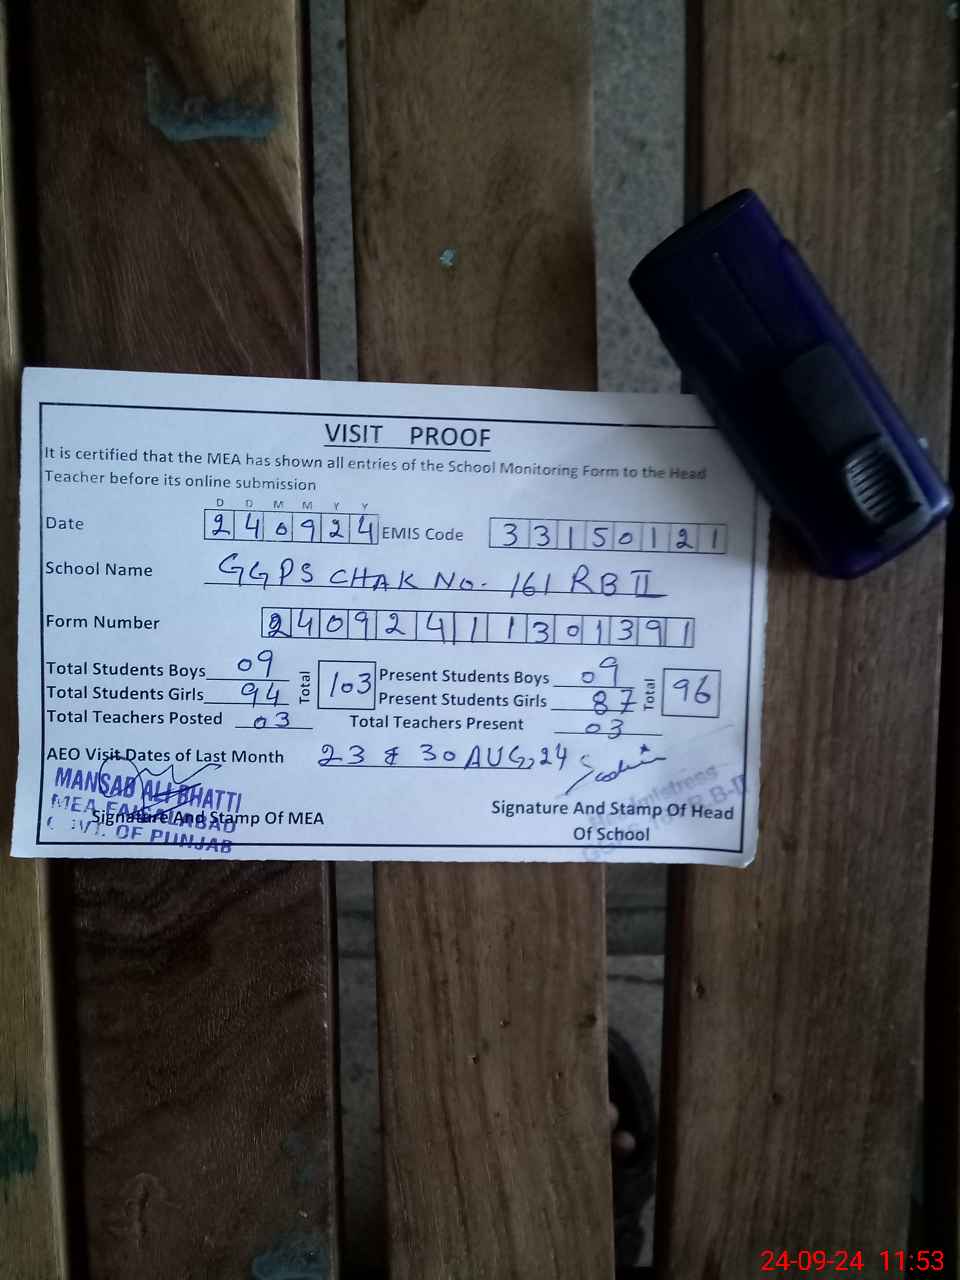 VISIT PROOF
It is certified that the MEA has shown all entries of the School Monitoring Form to the Head
Teacher before its online submission
D D M M Y Y
Date 240924 EMIS Code 33150121
School Name GGPS CHAK No. 161 RB II
Form Number 240924111301391
Total Students Boys 09 Total 103 Present Students Boys 09 Total 96
Total Students Girls 94 Present Students Girls 87
Total Teachers Posted 03 Total Teachers Present 03
AEO Visit Dates of Last Month 23 & 30 AUG,24
MANSAB ALI BHATTI
MEA FAISALABAD
GOVT. OF PUNJAB
Signature And Stamp Of MEA
Signature And Stamp Of Head
Of School
24-09-24 11:53